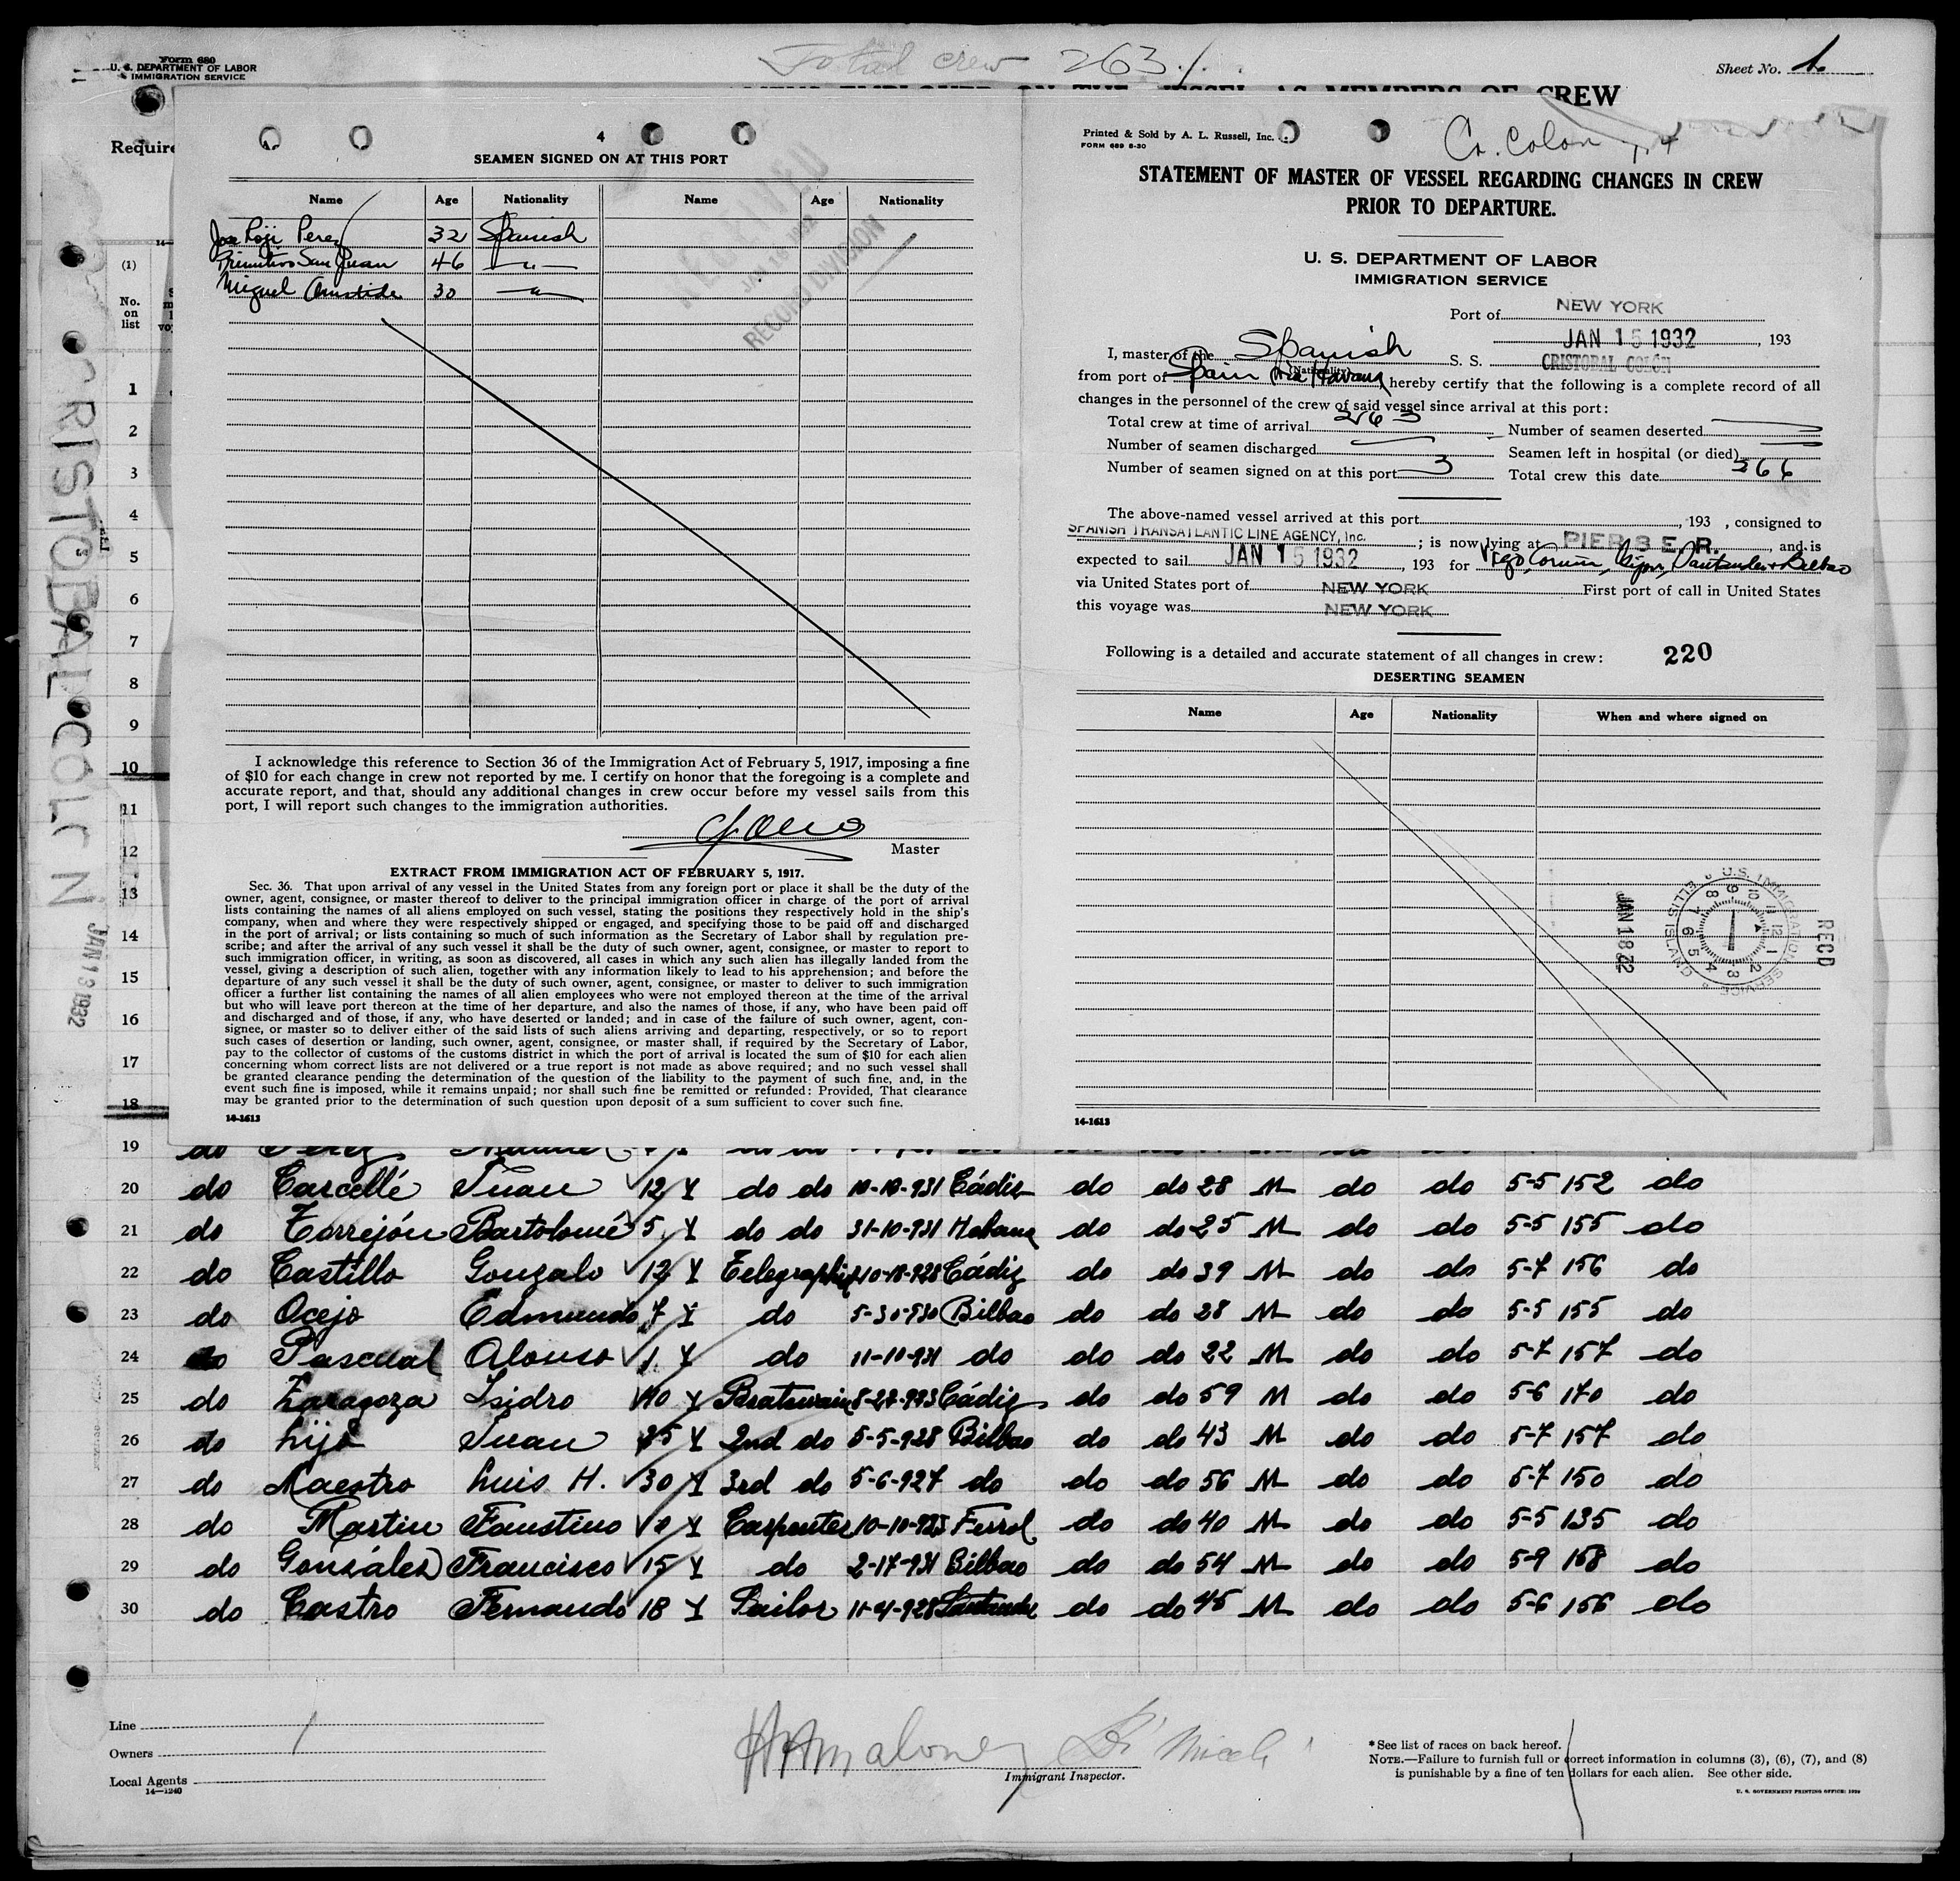 Form 680
U. S. DEPARTMENT OF LABOR
IMMIGRATION SERVICE
Total crew 263
Sheet No. 1
AS MEMBERS OF CREW
Require
(1)
No. on list
CRISTOBAL COLON
JAN 13 1932
4
SEAMEN SIGNED ON AT THIS PORT
Name Age Nationality Name Age Nationality
Jose Perez 32 Spanish
Primitivo San Juan 46 — " —
Miguel 30 — " —
RECORD DIVISION
I acknowledge this reference to Section 36 of the Immigration Act of February 5, 1917, imposing a fine
of $10 for each change in crew not reported by me. I certify on honor that the foregoing is a complete and
accurate report, and that, should any additional changes in crew occur before my vessel sails from this
port, I will report such changes to the immigration authorities.
Master
EXTRACT FROM IMMIGRATION ACT OF FEBRUARY 5, 1917.
Sec. 36. That upon arrival of any vessel in the United States from any foreign port or place it shall be the duty of the
owner, agent, consignee, or master thereof to deliver to the principal immigration officer in charge of the port of arrival
lists containing the names of all aliens employed on such vessel, stating the positions they respectively hold in the ship's
company, when and where they were respectively shipped or engaged, and specifying those to be paid off and discharged
in the port of arrival; or lists containing so much of such information as the Secretary of Labor shall by regulation pre-
scribe; and after the arrival of any such vessel it shall be the duty of such owner, agent, consignee, or master to report to
such immigration officer, in writing, as soon as discovered, all cases in which any such alien has illegally landed from the
vessel, giving a description of such alien, together with any information likely to lead to his apprehension; and before the
departure of any such vessel it shall be the duty of such owner, agent, consignee, or master to deliver to such immigration
officer a further list containing the names of all alien employees who were not employed thereon at the time of the arrival
but who will leave port thereon at the time of her departure, and also the names of those, if any, who have been paid off
and discharged and of those, if any, who have deserted or landed; and in case of the failure of such owner, agent, con-
signee, or master so to deliver either of the said lists of such aliens arriving and departing, respectively, or so to report
such cases of desertion or landing, such owner, agent, consignee, or master shall, if required by the Secretary of Labor,
pay to the collector of customs of the customs district in which the port of arrival is located the sum of $10 for each alien
concerning whom correct lists are not delivered or a true report is not made as above required; and no such vessel shall
be granted clearance pending the determination of the question of the liability to the payment of such fine, and, in the
event such fine is imposed, while it remains unpaid; nor shall such fine be remitted or refunded: Provided, That clearance
may be granted prior to the determination of such question upon deposit of a sum sufficient to cover such fine.
14-1613
Printed & Sold by A. L. Russell, Inc.
FORM 689 6-30
Cr. Colon
STATEMENT OF MASTER OF VESSEL REGARDING CHANGES IN CREW
PRIOR TO DEPARTURE.
U. S. DEPARTMENT OF LABOR
IMMIGRATION SERVICE
Port of NEW YORK
JAN 15 1932, 193
I, master of the Spanish S. S. CRISTOBAL COLON
(Nationality)
from port of Spain via Havana hereby certify that the following is a complete record of all
changes in the personnel of the crew of said vessel since arrival at this port:
Total crew at time of arrival 263 Number of seamen deserted —
Number of seamen discharged — Seamen left in hospital (or died) —
Number of seamen signed on at this port 3 Total crew this date 266
The above-named vessel arrived at this port , 193 , consigned to
SPANISH TRANSATLANTIC LINE AGENCY, Inc. ; is now lying at PIER 8 E. R. , and is
expected to sail JAN 15 1932 , 193 for Vigo, Coruna, Gijon, Santander & Bilbao
via United States port of NEW YORK First port of call in United States
this voyage was NEW YORK
Following is a detailed and accurate statement of all changes in crew: 220
DESERTING SEAMEN
Name Age Nationality When and where signed on
RECD
U.S. IMMIGRATION SERVICE ELLIS ISLAND
JAN 18 32
14-1613
1
2
3
4
5
6
7
8
9
10
11
12
13
14
15
16
17
18
19 do Perez
20 do Carcellé Juan 12 Y do do 10-10-931 Cádiz do do 28 M do do 5-5 152 do
21 do Torrejón Bartolomé 5 Y do do 31-10-931 Habana do do 25 M do do 5-5 155 do
22 do Castillo Gonzalo 12 Y Telegraphist 10-18-928 Cádiz do do 39 M do do 5-7 156 do
23 do Ocejo Edmundo 7 Y do 5-30-930 Bilbao do do 28 M do do 5-5 155 do
24 do Pascual Alonso 1 Y do 11-10-931 do do do 22 M do do 5-7 157 do
25 do Zaragoza Isidro 40 Y Boatswain Cádiz do do 59 M do do 5-6 170 do
26 do Lijó Juan 25 Y 2nd do 5-5-928 Bilbao do do 43 M do do 5-7 157 do
27 do Maestro Luis H. 30 Y 3rd do 5-6-927 do do do 56 M do do 5-7 150 do
28 do Martin Faustino Y Carpenter Ferrol do do 40 M do do 5-5 135 do
29 do González Francisco 15 Y do 2-17-931 Bilbao do do 54 M do do 5-9 158 do
30 do Castro Fernando 18 Y Sailor 11-4-928 Santander do do 45 M do do 5-6 156 do
Line
Owners
Local Agents
14—1240
Immigrant Inspector.
*See list of races on back hereof.
NOTE.—Failure to furnish full or correct information in columns (3), (6), (7), and (8)
is punishable by a fine of ten dollars for each alien. See other side.
U. S. GOVERNMENT PRINTING OFFICE: 1930